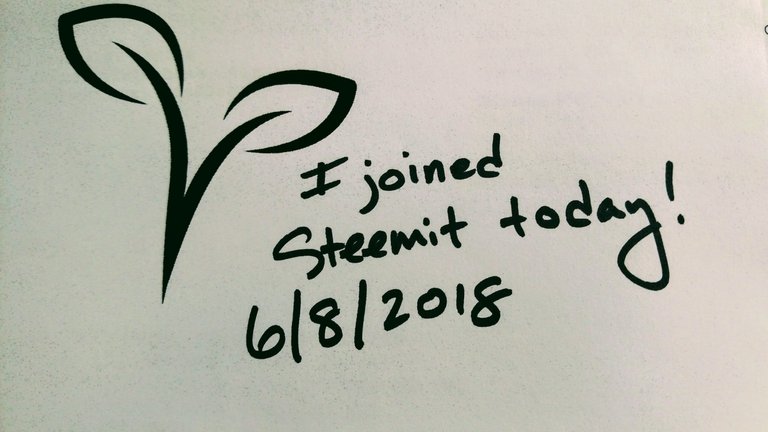 I joined
Steemit today!
6/8/2018